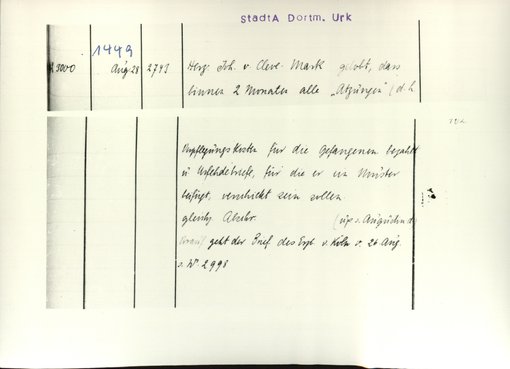 StadtA Dortm. Urk
1449
3000 Aug 28 2743 Herz. Joh. v. Cleve-Mark gelobt, dass
binnen 2 Monaten alle „Atzungen" (d. h.
Verpflegungskosten für die Gefangenen bezahlt
u Urfehdebriefe, für die er in Münster
verschickt sein sollen.
gleichz. Abschr.
geht der Brief des Erzb. v. Köln v. 26 Aug.
s. N. 2998